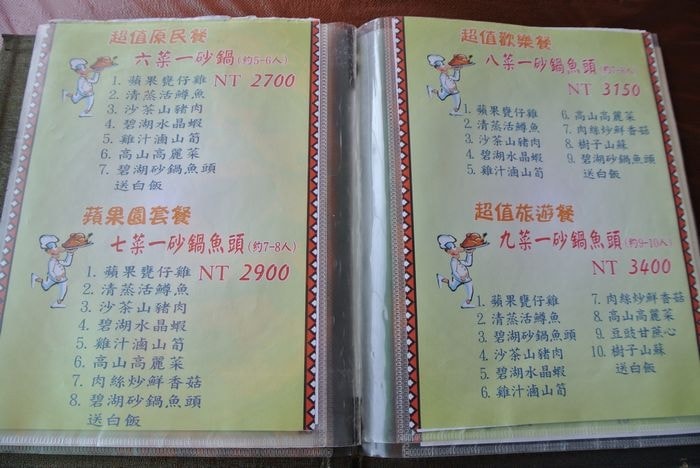 超值原民餐
六菜一砂鍋(約5-6人)
NT 2700
1. 蘋果甕仔雞
2. 清蒸活鱒魚
3. 沙茶山豬肉
4. 碧湖水晶蝦
5. 雞汁滷山筍
6. 高山高麗菜
7. 碧湖砂鍋魚頭
送白飯
蘋果園套餐
七菜一砂鍋魚頭(約7-8人)
NT 2900
1. 蘋果甕仔雞
2. 清蒸活鱒魚
3. 沙茶山豬肉
4. 碧湖水晶蝦
5. 雞汁滷山筍
6. 高山高麗菜
7. 肉絲炒鮮香菇
8. 碧湖砂鍋魚頭
送白飯
超值歡樂餐
八菜一砂鍋魚頭(約7-8人)
NT 3150
1. 蘋果甕仔雞
2. 清蒸活鱒魚
3. 沙茶山豬肉
4. 碧湖水晶蝦
5. 雞汁滷山筍
6. 高山高麗菜
7. 肉絲炒鮮香菇
8. 樹子山蘇
9. 碧湖砂鍋魚頭
送白飯
超值旅遊餐
九菜一砂鍋魚頭(約9-10人)
NT 3400
1. 蘋果甕仔雞
2. 清蒸活鱒魚
3. 碧湖砂鍋魚頭
4. 沙茶山豬肉
5. 碧湖水晶蝦
6. 雞汁滷山筍
7. 肉絲炒鮮香菇
8. 高山高麗菜
9. 豆豉甘蔗心
10. 樹子山蘇
送白飯